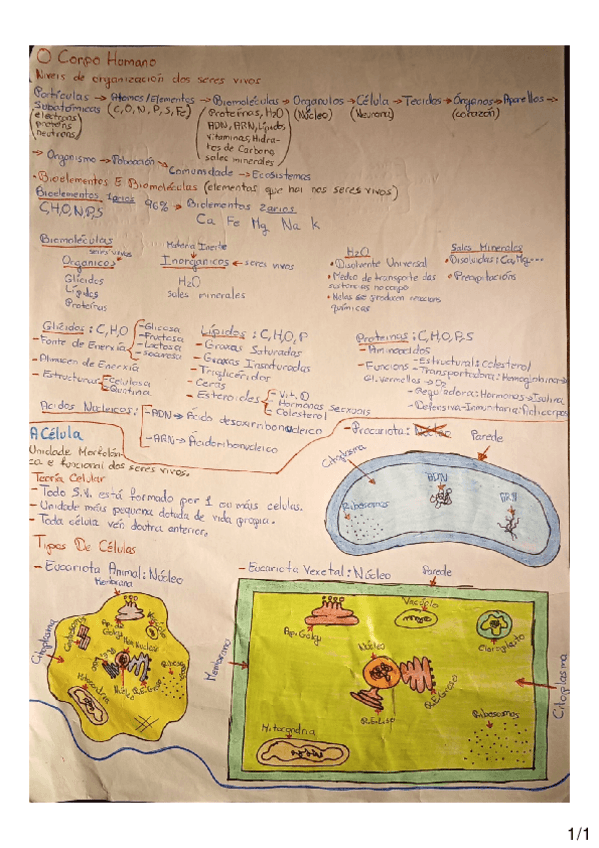 O Corpo Humano
Niveis de organización dos seres vivos
Partículas → Atomos/Elementos → Biomoléculas → Organulos → Célula → Tecidos → Órganos → Aparellos →
Subatómicas (C, O, N, P, S, Fe) (Proteínas, H2O (Núcleo) (Neurona) (corazón)
(electrons ADN, ARN, Lípidos,
protóns Vitaminas, Hidra-
neutrons) tos de Carbono,
sales minerales)
→ Organismo → Poboación → Comunidade → Ecosistemas
• Bioelementos E Biomoléculas (elementos que hai nos seres vivos)
Bioelementos 1arios 96% → Bielementos 2arios
C, H, O, N, P, S Ca Fe Mg Na k
Biomoléculas
seres vivos
Orgánicos
Glícidos
Lípidos
Proteínas
Materia Inerte
Inorgánicos ← seres vivos
H2O
sales minerales
H2O
• Disolvente Universal
• Medio de transporte das
sustancias no corpo
• Nelas se producen reaccións
químicas
Sales Minerales
• Disolvidas: Ca, Mg...
• Precipitacións
Glícidos: C, H, O
- Fonte de Enerxía
- Glicosa
- Fructosa
- Lactosa
- Sacarosa
- Almacen de Enerxía
- Estructuras
- Celulosa
- Quitina
Lípidos: C, H, O, P
- Graxas Saturadas
- Graxas Insaturadas
- Triglicéridos
- Ceras
- Esteroides
- Vit. D
- Hormonas sexuais
- Colesterol
Proteínas: C, H, O, P, S
- Aminoácidos
- Funcions - Estructural: Colesterol
- Transportadora: Hemoglobina →
Gl. vermellos → O2
- Reguladora: Hormonas → Isulina
- Defensiva - Inmunitaria: Anticorpos
Acidos Nucleicos:
- ADN → Ácido desoxirribonucleico
- ARN → Ácido ribonucleico
A Célula
Unidade Morfolóxi-
ca e funcional dos seres vivos.
Teoría Celular
- Todo S.V. está formado por 1 ou máis celulas.
- Unidade máis pequena dotada de vida propia.
- Toda célula ven doutra anterior.
- Procariota: Núcleo
Parede
Citoplasma
ADN
ARN
Ribosomas
Tipos De Células
- Eucariota Animal: Núcleo
Membrana
Citoplasma
Ap. de
Golgy
Vacúolo
Núcleo
Ribosomas
Mitocondria
- Eucariota Vexetal: Núcleo
Parede
Membrana
Ap. Golgy
Vacúolo
Cloroplasto
Núcleo
Citoplasma
Ribosomas
Mitocondria
1/1